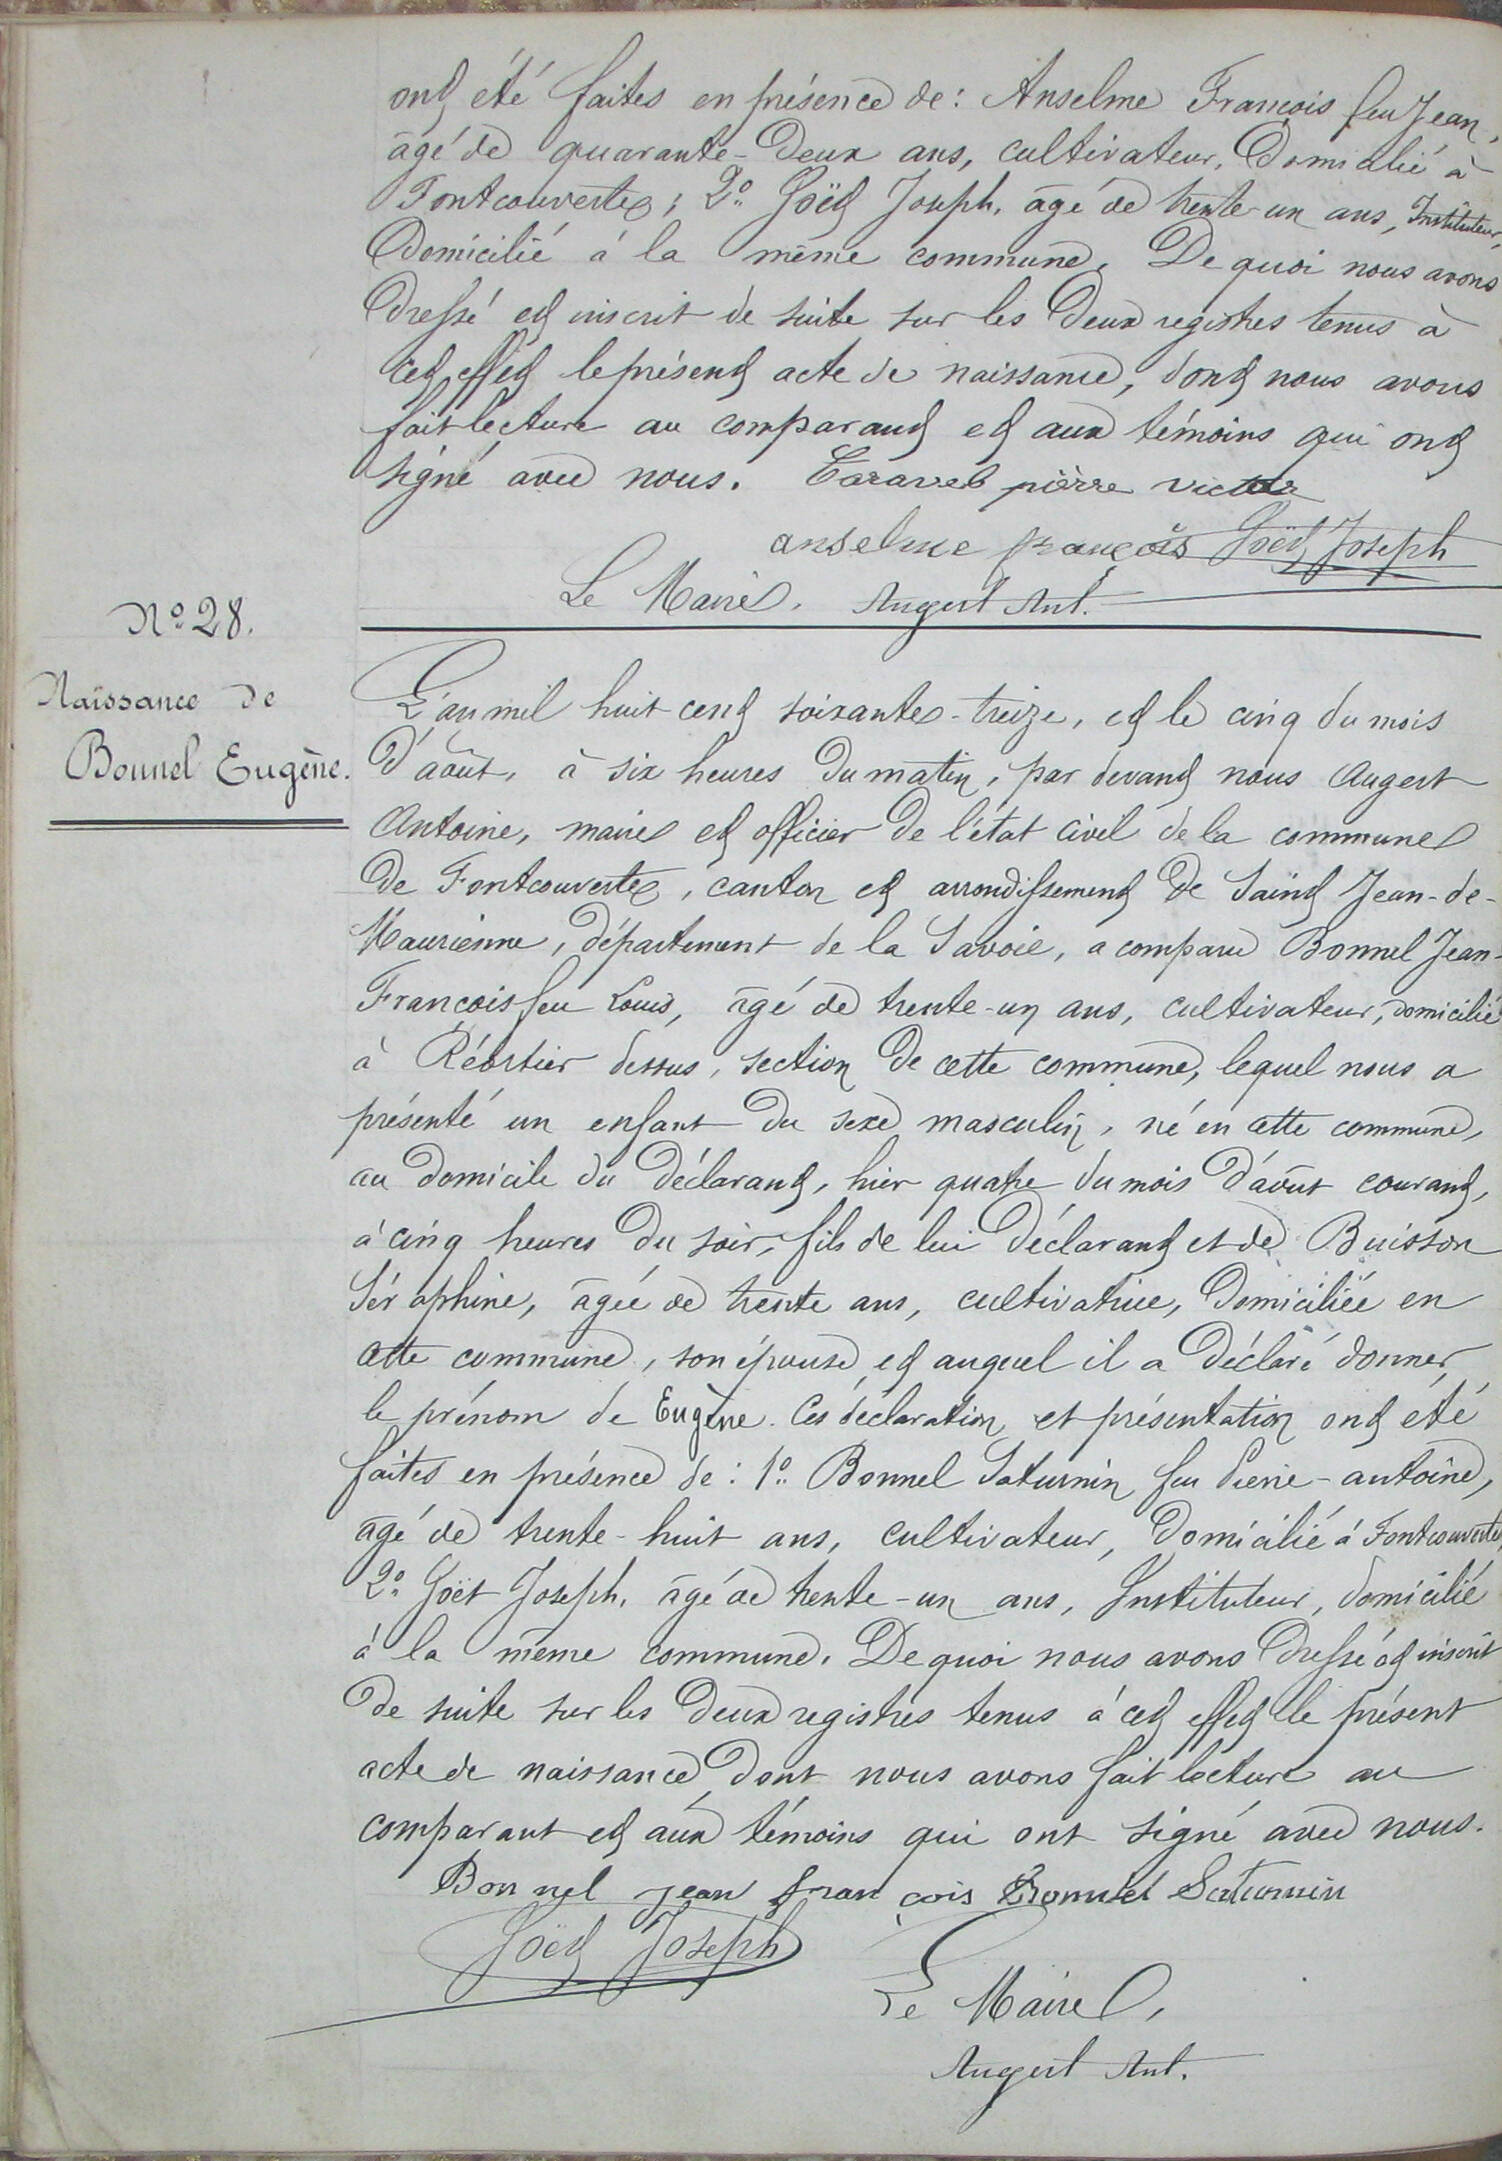 ont été faites en présence de : Anselme François feu Jean,
âgé de quarante-deux ans, cultivateur, Domicilié à
Fontcouverte ; 2° Goët Joseph, âgé de trente-un ans, Instituteur,
Domicilié à la même commune. De quoi nous avons
Dressé et inscrit de suite sur les Deux registres tenus à
cet effet le présent acte de naissance, dont nous avons
fait lecture au comparant et aux témoins qui ont
signé avec nous. Caravel pierre victor
anselme françois Goët Joseph
Le Maire, Augert Ant.
N° 28.
Naissance de
Bonnel Eugène.
L'an mil huit cent soixante-treize, et le cinq du mois
d'août, à six heures Du matin, par devant nous Augert
Antoine, maire et officier De l'état civil de la commune
De Fontcouverte, canton et arrondissement De Saint Jean-de-
Maurienne, département de la Savoie, a comparu Bonnel Jean-
François feu Louis, âgé de trente-un ans, cultivateur, domicilié
à dessus, section De cette commune, lequel nous a
présenté un enfant Du sexe masculin, né en cette commune,
au Domicile du Déclarant, hier quatre du mois D'août courant,
à cinq heures Du soir, fils de lui Déclarant et de Buisson
Séraphine, âgée de trente ans, cultivatrice, Domiciliée en
cette commune, son épouse, et auquel il a Déclaré donner
le prénom de Eugène. Ces déclaration et présentation ont été
faites en présence de : 1° Bonnel Saturnin feu Pierre-antoine,
âgé de trente-huit ans, cultivateur, Domicilié à Fontcouverte,
2° Goët Joseph, âgé de trente-un ans, Instituteur, domicilié
à la même commune. De quoi nous avons Dressé et inscrit
De suite sur les Deux registres tenus à cet effet le présent
acte de naissance, Dont nous avons fait lecture au
comparant et aux témoins qui ont signé avec nous.
Bonnel jean françois Bonnel Saturnin
Goët Joseph
Le Maire,
Augert Ant.